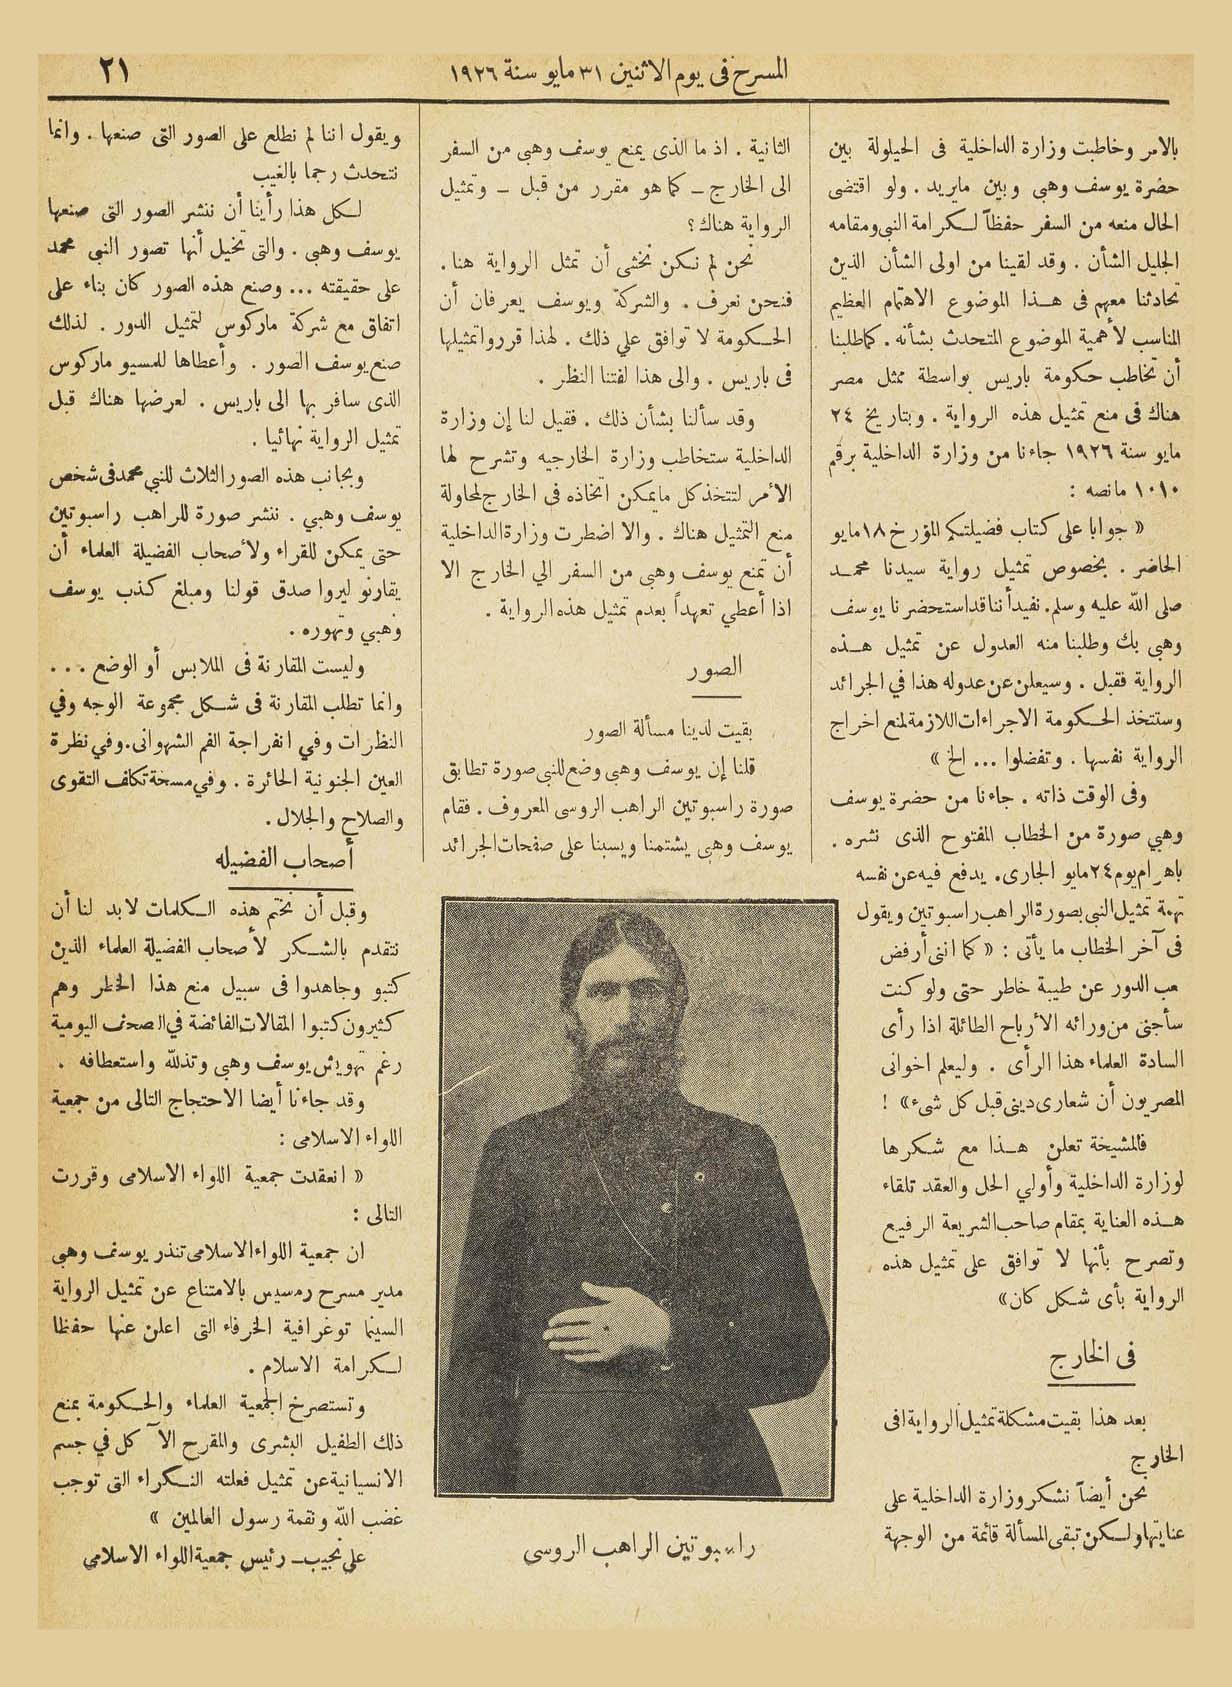 المسرح فى يوم الاثنين ٣١ مايو سنة ١٩٢٦
٢١
بالامر وخاطبت وزارة الداخلية فى الحيلولة بين
حضرة يوسف وهبى وبين مايريد . ولو اقتضى
الحال منعه من السفر حفظاً لكرامة النبى ومقامه
الجليل الشأن . وقد لقينا من اولى الشأن الذين
تحادثنا معهم فى هذا الموضوع الاهتمام العظيم
المناسب لأهمية الموضوع المتحدث بشأنه . كما طلبنا
أن تخاطب حكومة باريس بواسطة ممثل مصر
هناك فى منع تمثيل هذه الرواية . وبتاريخ ٢٤
مايو سنة ١٩٢٦ جاءنا من وزارة الداخلية برقم
١٠١٠ مانصه :
« جوابا على كتاب فضيلتكم المؤرخ ١٨ مايو
الحاضر . بخصوص تمثيل رواية سيدنا محمد
صلى الله عليه وسلم . نفيد أننا قد استحضرنا يوسف
وهبى بك وطلبنا منه العدول عن تمثيل هذه
الرواية فقبل . وسيعلن عن عدوله هذا في الجرائد
وستتخذ الحكومة الاجراءات اللازمة لمنع اخراج
الرواية نفسها . وتفضلوا ... الخ »
وفى الوقت ذاته . جاءنا من حضرة يوسف
وهبي صورة من الخطاب المفتوح الذى نشره .
باهرام يوم ٢٤ مايو الجارى . يدفع فيه عن نفسه
تهمة تمثيل النبى بصورة الراهب راسبوتين ويقول
فى آخر الخطاب ما يأتى : « كما اننى أرفض
عب الدور عن طيبة خاطر حتى ولو كنت
سأجنى من ورائه الأرباح الطائلة اذا رأى
السادة العلماء هذا الرأى . وليعلم اخوانى
المصريون أن شعارى دينى قبل كل شىء» !
فالمشيخة تعلن هذا مع شكرها
لوزارة الداخلية وأولي الحل والعقد تلقاء
هذه العناية بمقام صاحب الشريعة الرفيع
وتصرح بأنها لا توافق على تمثيل هذه
الرواية بأى شكل كان»
فى الخارج
بعد هذا بقيت مشكلة تمثيل الرواية افى
الخارج
نحن أيضاً نشكر وزارة الداخلية على
عنايتها ولكن تبقى المسألة قائمة من الوجهة
الثانية . اذ ما الذى يمنع يوسف وهبي من السفر
الى الخارج ــ كما هو مقرر من قبل ــ وتمثيل
الرواية هناك ؟
نحن لم نكن نخشى أن تمثل الرواية هنا .
فنحن نعرف . والشركة ويوسف يعرفان أن
الحكومة لا توافق علي ذلك . لهذا قرروا تمثيلها
فى باريس . والى هذا لفتنا النظر .
وقد سألنا بشأن ذلك . فقيل لنا إن وزارة
الداخلية ستخاطب وزارة الخارجيه وتشرح لها
الأمر لتتخذ كل مايمكن اتخاذه فى الخارج لمحاولة
منع التمثيل هناك . والا اضطرت وزارة الداخلية
أن تمنع يوسف وهبى من السفر الي الخارج الا
اذا أعطي تعهداً بعدم تمثيل هذه الرواية .
الصور
بقيت لدينا مسألة الصور
قلنا إن يوسف وهبى وضع للنبى صورة تطابق
صورة راسبوتين الراهب الروسى المعروف . فقام
يوسف وهبى يشتمنا ويسبنا على صفحات الجرائد
راسبوتين الراهب الروسي
ويقول اننا لم نطلع على الصور التى صنعها . وانما
نتحدث رجما بالغيب
لكل هذا رأينا أن ننشر الصور التى صنعها
يوسف وهبى . والتى تخيل أنها تصور النبى محمد
على حقيقته ... وصنع هذه الصور كان بناء على
اتفاق مع شركة ماركوس لتمثيل الدور . لذلك
صنع يوسف الصور . وأعطاها للمسيو ماركوس
الذى سافر بها الى باريس . لعرضها هناك قبل
تمثيل الرواية نهائيا .
وبجانب هذه الصور الثلاث للنبي محمد فى شخص
يوسف وهبي . ننشر صورة للراهب راسبوتين
حتى يمكن للقراء ولأصحاب الفضيلة العلماء أن
يقارنو ليروا صدق قولنا ومبلغ كذب يوسف
وهبي وتهوره .
وليست المقارنة فى الملابس أو الوضع ...
وانما تطلب المقارنة فى شكل مجموعة الوجه وفي
النظرات وفي انفراجة الفم الشهوانى . وفي نظرة
العين الجنونية الحائرة . وفي مسخة تكلف التقوى
والصلاح والجلال .
أصحاب الفضيله
وقبل أن نختم هذه الكلمات لابد لنا أن
نتقدم بالشكر لأصحاب الفضيلة العلماء الذين
كتبو وجاهدوا فى سبيل منع هذا الخطر وهم
كثيرون كتبوا المقالات الفائضة في الصحف اليومية
رغم تهويش يوسف وهبى وتذلله واستعطافه .
وقد جاءنا أيضا الاحتجاج التالى من جمعية
اللواء الاسلامى :
« انعقدت جمعية اللواء الاسلامى وقررت
التالى :
ان جمعية اللواء الاسلامى تنذر يوسف وهبى
مدير مسرح رمسيس بالامتناع عن تمثيل الرواية
السينما توغرافية الخرقاء التى اعلن عنها حفظا
لكرامة الاسلام .
وتستصرخ الجمعية العلماء والحكومة بمنع
ذلك الطفيل البشرى والمقرح الآكل في جسم
الانسيانية عن تمثيل فعلته النكراء التى توجب
غضب الله ونقمة رسول العالمين »
علي نجيب ــ رئيس جمعية اللواء الاسلامي